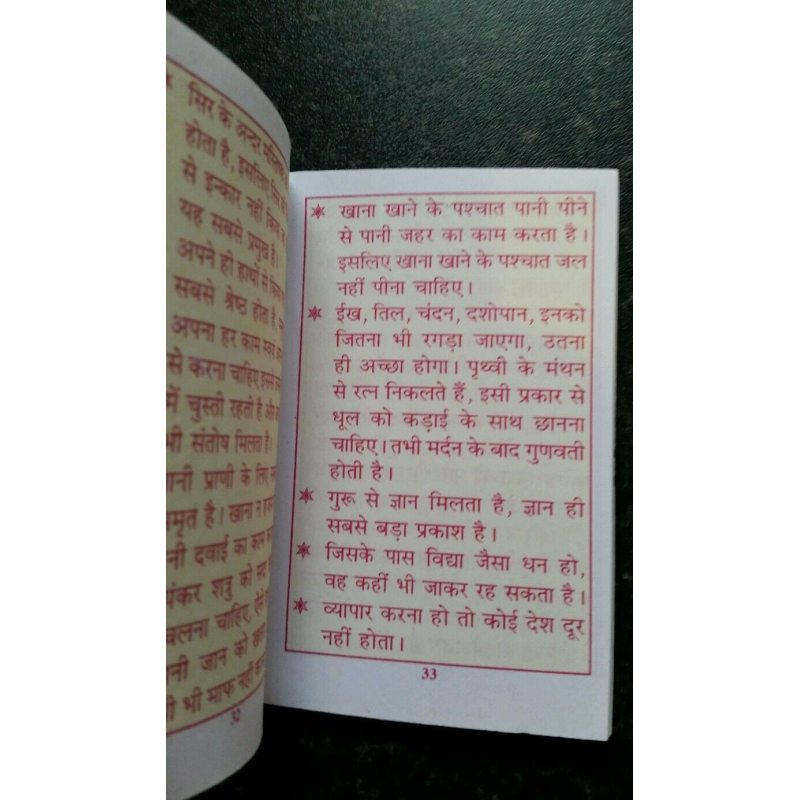 सिर के अन्दर
होता है, इसलिए
से इन्कार नहीं
यह सबसे प्रमुख है।
अपने ही हाथों से
सबसे श्रेष्ठ होता है,
अपना हर काम स्वयं
से करना चाहिए इससे
में चुस्ती रहती है और
भी संतोष मिलता है।
प्राणी के लिए
है। खाना न
दवाई का काम
शत्रु को
चाहिए, ऐसे
जान को
भी माफ नहीं
32
✶ खाना खाने के पश्चात पानी पीने
से पानी जहर का काम करता है।
इसलिए खाना खाने के पश्चात जल
नहीं पीना चाहिए।
✶ ईख, तिल, चंदन, दशोपान, इनको
जितना भी रगड़ा जाएगा, उतना
ही अच्छा होगा। पृथ्वी के मंथन
से रत्न निकलते हैं, इसी प्रकार से
धूल को कड़ाई के साथ छानना
चाहिए। तभी मर्दन के बाद गुणवती
होती है।
✶ गुरू से ज्ञान मिलता है, ज्ञान ही
सबसे बड़ा प्रकाश है।
✶ जिसके पास विद्या जैसा धन हो,
वह कहीं भी जाकर रह सकता है।
✶ व्यापार करना हो तो कोई देश दूर
नहीं होता।
33